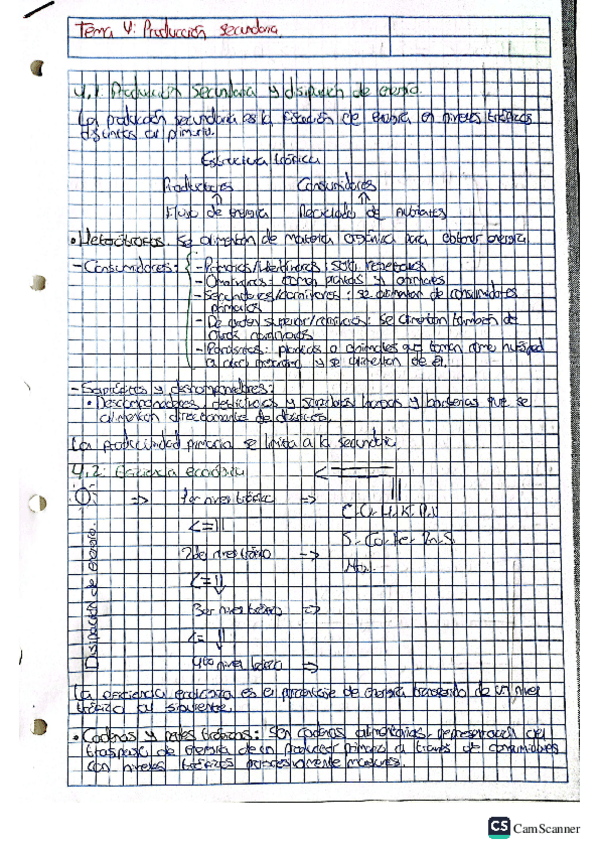 Tema 4: Producción secundaria.
4.1. Producción secundaria y disipación de energía.
La producción secundaria es la fijación de energía en niveles tróficos
distintos al primario.
Estructura trófica
Productores Consumidores
Flujo de energía Reciclado de nutrientes
• Heterótrofos. Se alimentan de materia orgánica para obtener energía.
- Consumidores: - Primarios/Herbívoros: solo vegetales
- Omnívoros: toman plantas y animales
- Secundarios/carnívoros: se alimentan de consumidores
primarios
- De orden superior/carnívoros: se alimentan también de
otros carnívoros
- Parásitos: plantas o animales que toman como huésped
a otro y se alimentan de él.
- Saprófitos y descomponedores:
• Descomponedores, detritívoros y hongos y bacterias que se
alimentan directamente de
La productividad primaria se limita a la secundaria.
4.2. Eficiencia ecológica
1er nivel trófico
2do nivel trófico
3er nivel trófico
4to nivel trófico
Disipación de energía.
La eficiencia ecológica es el porcentaje de energía transferido de un nivel
trófico al siguiente.
• Cadenas y redes tróficas: Son cadenas alimentarias, representación del
traspaso de energía de un productor primario a través de consumidores
con niveles tróficos progresivamente mayores.
CS CamScanner